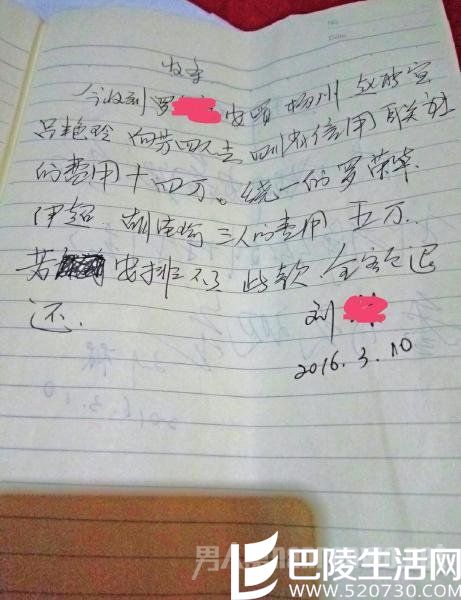 收条
今收到罗
吕艳玲 向芳四人去四川农信用联社
的费用十四万。统一的罗荣华
伊超 胡 三人的费用 五万.
若 安排不了 此款 全额退
还.
刘
2016.3.10
巴陵生活网
www.520730.com